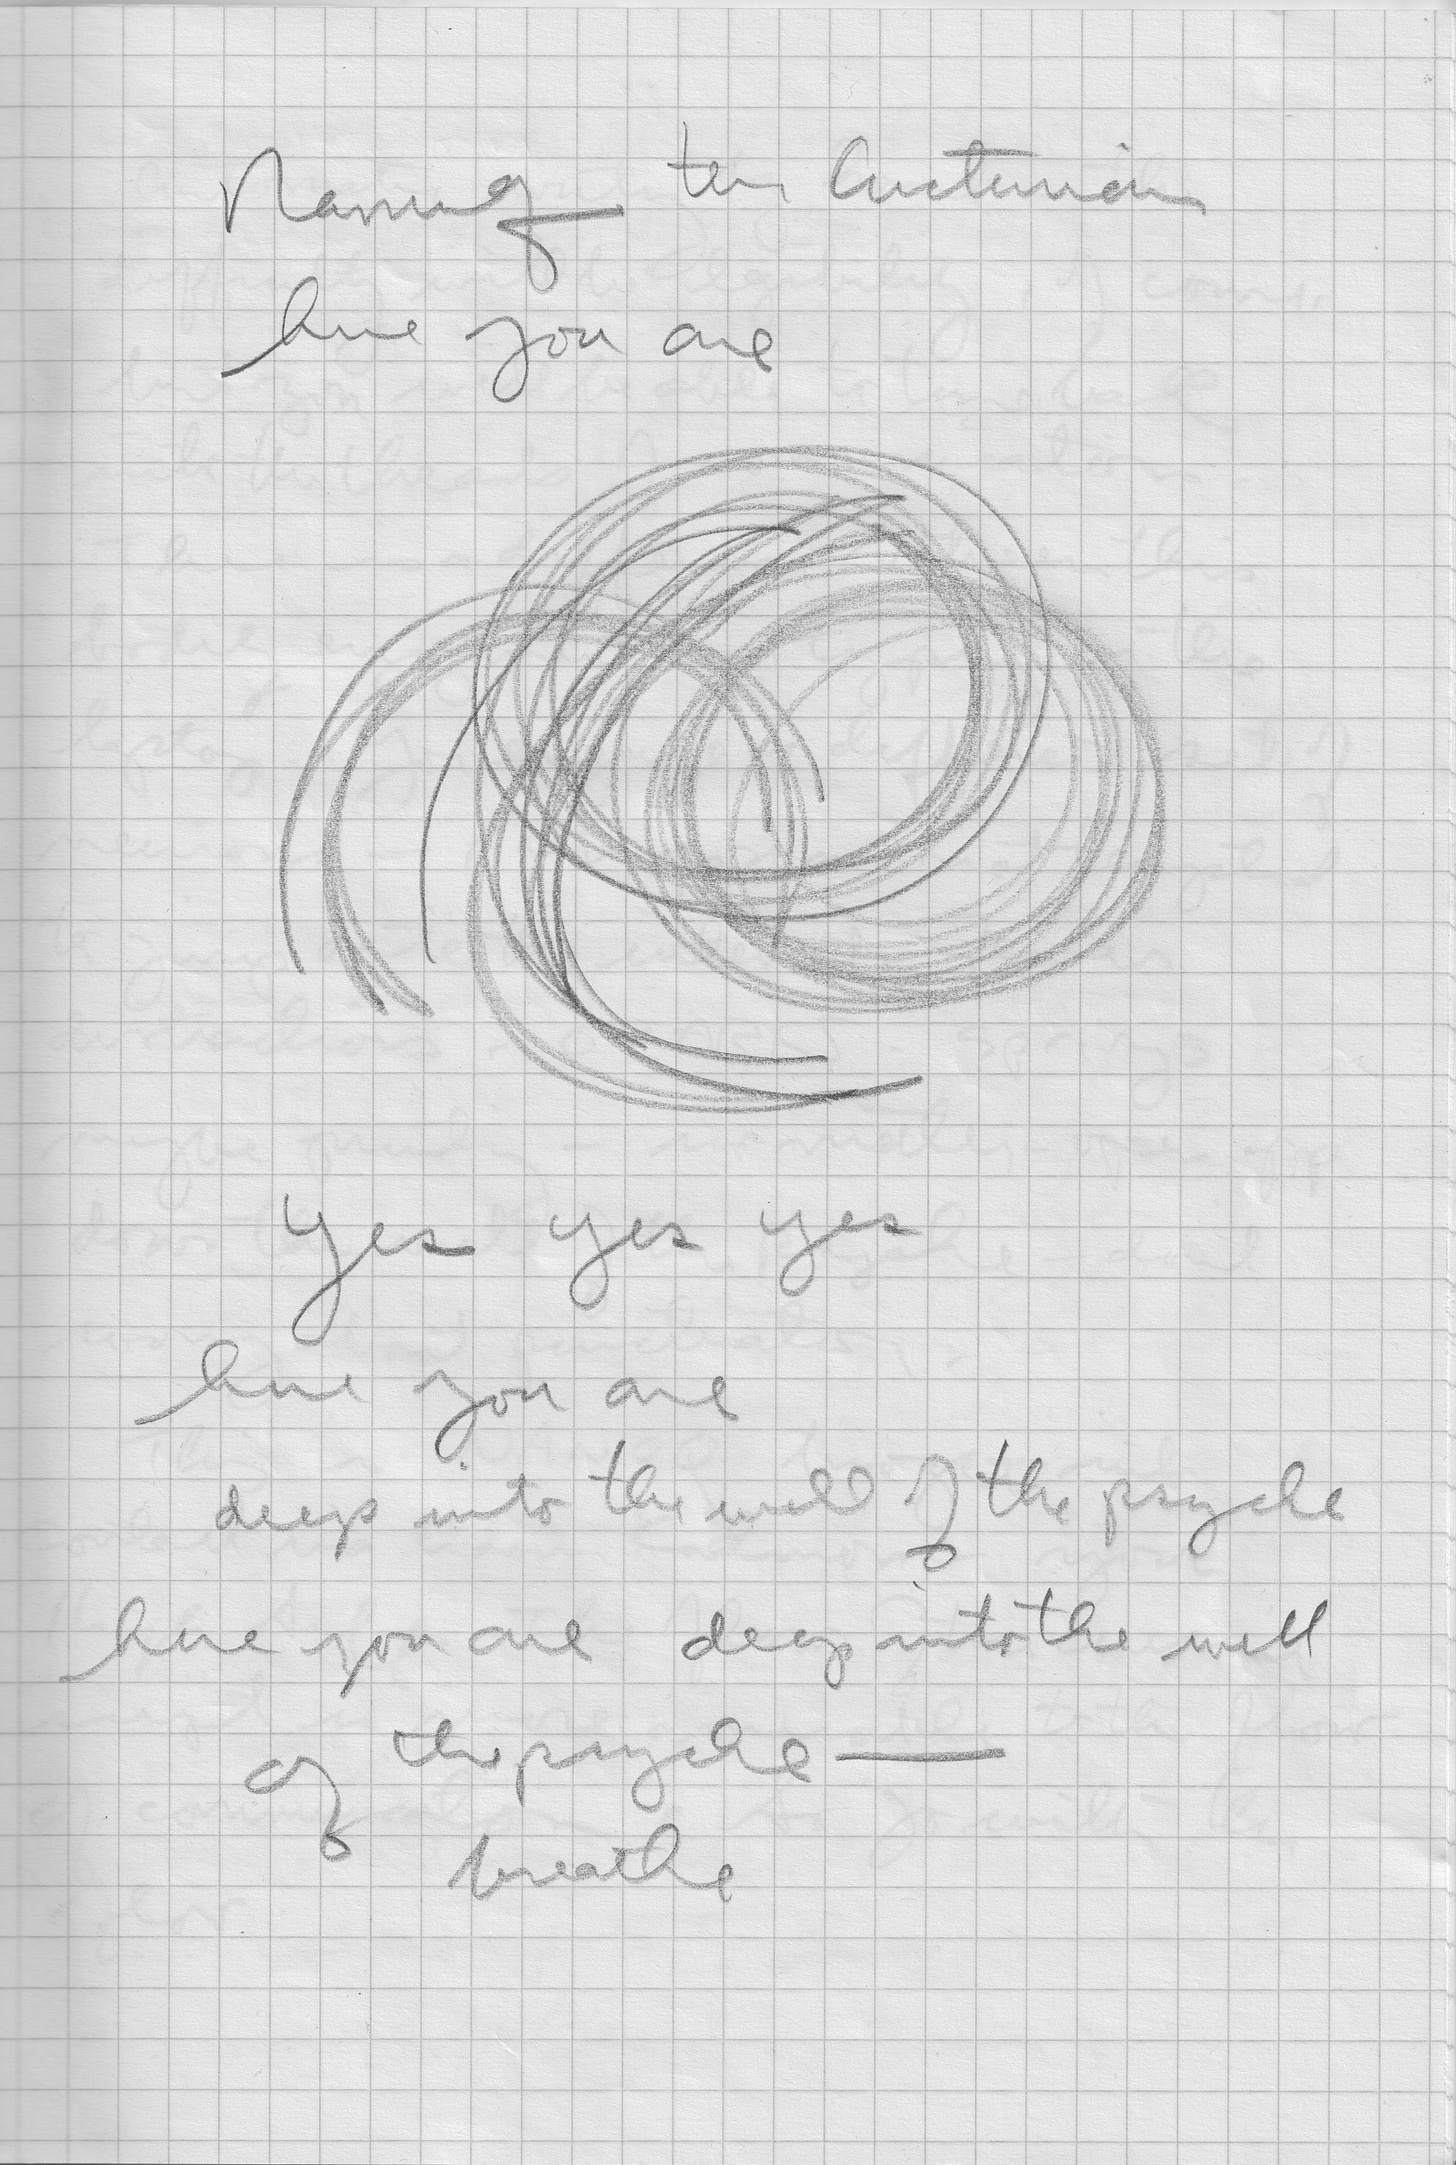 here you are
yes yes yes
here you are
deep into the well of the psyche
here you are deep into the well
of the psyche —
breathe